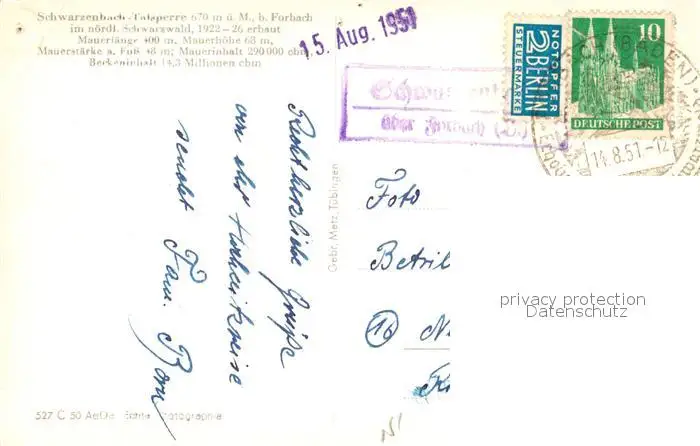 Schwarzenbach-Talsperre 670 m ü. M., b. Forbach
im nördl. Schwarzwald, 1922-26 erbaut
Mauerlänge 400 m, Mauerhöhe 68 m,
Mauerstärke a. Fuß 48 m; Mauerinhalt 290000 cbm
Beckeninhalt 14,3 Millionen cbm
15. Aug. 1951
über Forbach
NOTOPFER
2 BERLIN
STEUERMARKE
10
DEUTSCHE POST
14.8.51-12
Recht herzliche Grüße
von der Hochzeitsreise
sendet Fam.
Gebr. Metz, Tübingen
Foto
Betril
16
privacy protection
Datenschutz
527 C 50 Echte Photographie